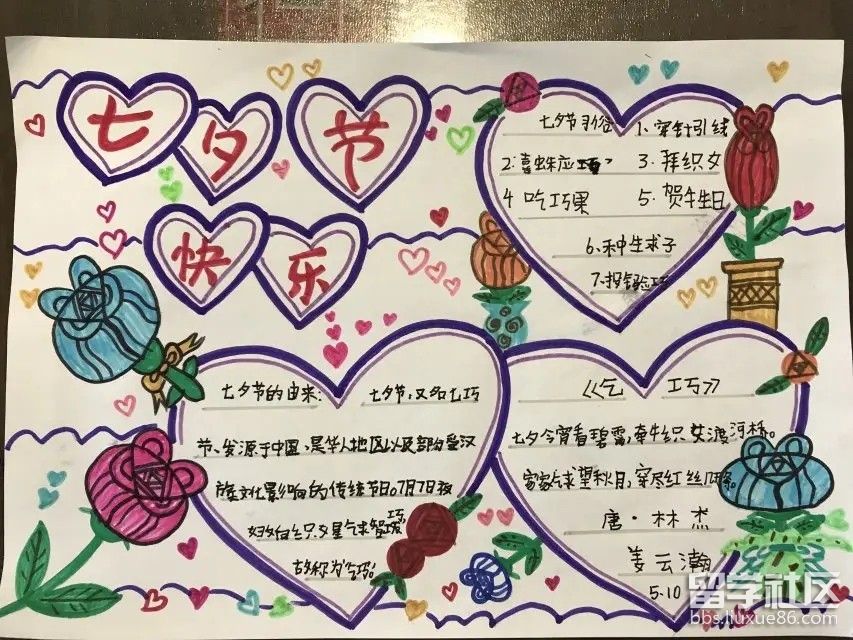 七夕节
快乐
七夕节习俗 1、穿针引线
2、喜蛛应巧 3、拜织女
4 吃巧果 5、贺牛生日
6、种生求子
7、投针验巧
七夕节的由来: 七夕节,又名七巧
节、发源于中国,是华人地区以及部分受汉
族文化影响的传统节日。7月7日夜
妇女向织女星乞求智巧
故称为乞巧。
《乞 巧》
七夕今宵看碧霄,牵牛织女渡河桥。
家家乞求望秋月,穿尽红丝几条。
唐·林杰
姜云瀚
5.10
留学社区
bbs.liuxue86.com